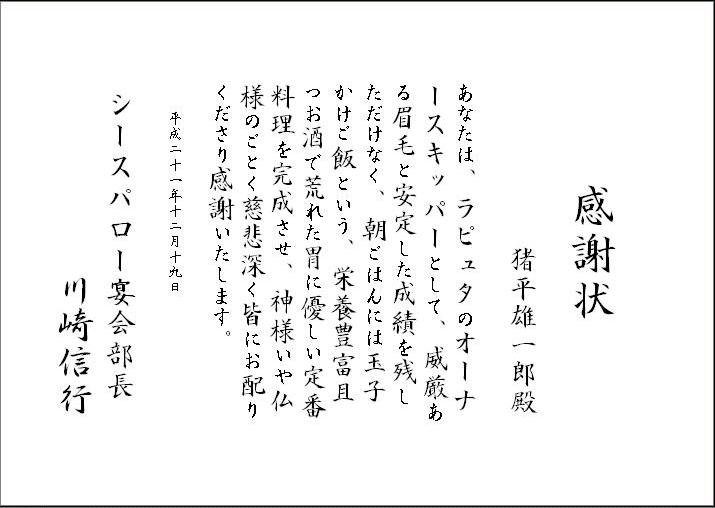 感謝状
猪平雄一郎殿
あなたは、ラピュタのオーナ
ースキッパーとして、威厳あ
る眉毛と安定した成績を残し
ただけなく、朝ごはんには玉子
かけご飯という、栄養豊富且
つお酒で荒れた胃に優しい定番
料理を完成させ、神様いや仏
様のごとく慈悲深く皆にお配り
くださり感謝いたします。
平成二十一年十二月十九日
シースパロー宴会部長
川崎信行